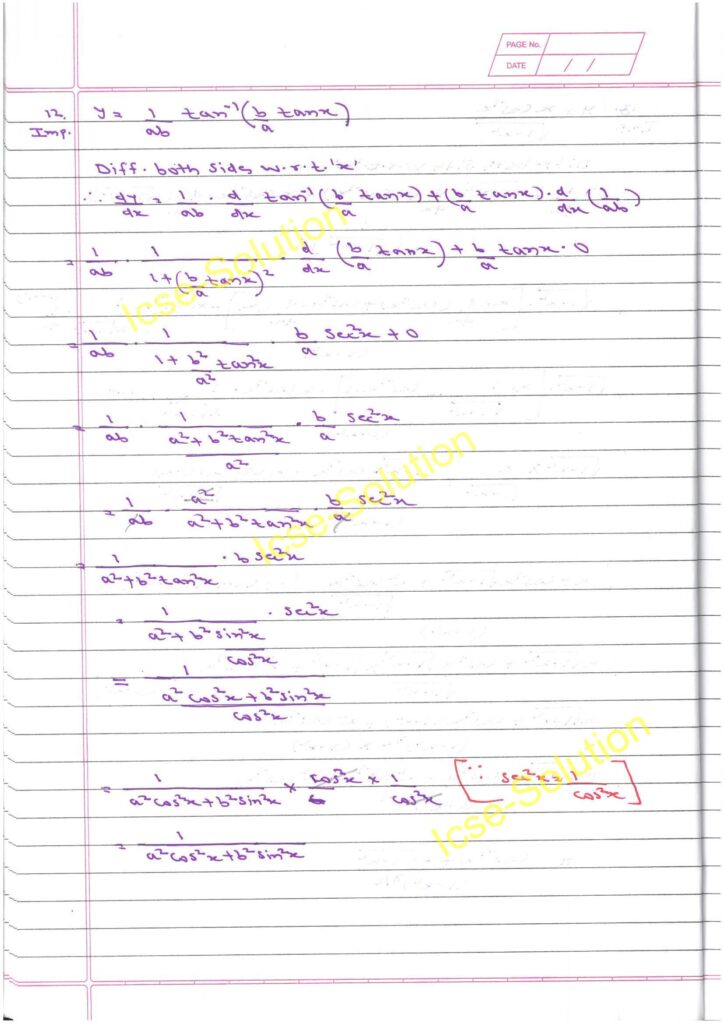 PAGE No.
DATE / /
12. y = 1/ab tan⁻¹(b/a tanx)
Imp.
Diff. both sides w.r.t. 'x'
∴ dy/dx = 1/ab · d/dx tan⁻¹(b/a tanx) + (b/a tanx) · d/dx (1/ab)
= 1/ab · 1/(1+(b/a tanx)²) · d/dx (b/a tanx) + b/a tanx · 0
= 1/ab · 1/(1+b²/a² tan²x) · b/a sec²x + 0
= 1/ab · 1/((a²+b²tan²x)/a²) · b/a sec²x
= 1/ab · a²/(a²+b²tan²x) · b/a sec²x
= 1/(a²+b²tan²x) · b sec²x
= 1/(a²+b² sin²x/cos²x) · sec²x
= 1/((a²cos²x+b²sin²x)/cos²x)
= 1/(a²cos²x+b²sin²x) × cos²x × 1/cos²x [∵ sec²x = 1/cos²x]
= 1/(a²cos²x+b²sin²x)
Icse-Solution
Icse-Solution
Icse-Solution